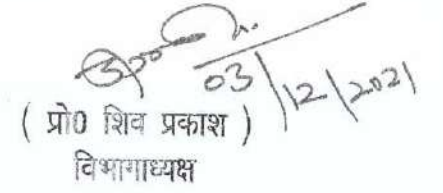 03/12/2021
( प्रो0 शिव प्रकाश )
विभागाध्यक्ष